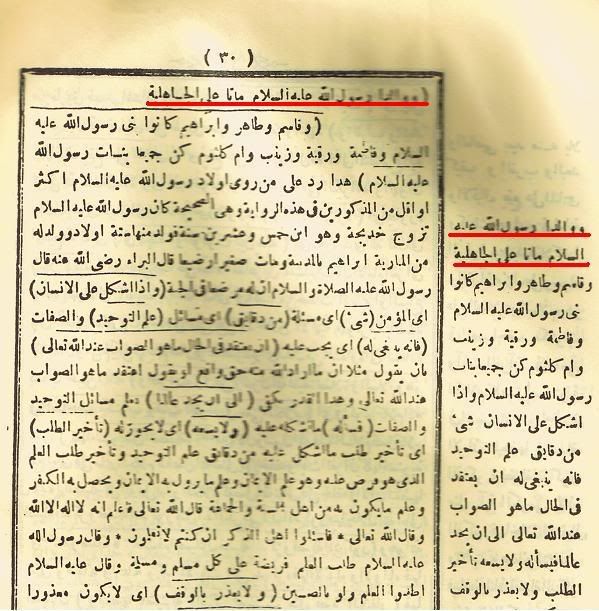 ( ٣٠ )
( ووالدا رسول الله عليه السلام ماتا على الجاهلية
( وقاسم وطاهر وابراهيم كانوا بنى رسول الله عليه
السلام وفاطمة ورقية وزينب وام كلثوم كن جميعا بنات رسول الله
عليه السلام ) هذا رد على من روى اولاد رسول الله عليه السلام اكثر
او اقل من المذكورين فى هذه الرواية وهى الصحيحة كان رسول الله عليه السلام
تزوج خديجة وهو ابن خمس وعشرين سنة فولد منها ستة اولاد وولد له
من المارية ابراهيم بالمدينة ومات صغيرا رضيعا قال البراء رضى الله عنه قال
رسول الله عليه الصلاة والسلام ان له مرضعا فى الجنة (واذا اشكل على الانسان)
اى المؤمن (شئ) اى مسئلة (من دقايق) اى مسائل (علم التوحيد) والصفات
(فانه ينبغى له) اى يجب عليه (ان يعتقد فى الحال ما هو الصواب عند الله تعالى)
بان يقول مثلا ان ما اراد الله منه حق واقع او يقول اعتقد ما هو الصواب
عند الله تعالى وهذا القدر يكفى (الى ان يجد عالما) يعلم مسائل التوحيد
والصفات (فيسأله) ما اشكل عليه (ولا يسعه) اى لا يجوز له (تأخير الطلب)
اى تأخير طلب ما اشكل عليه من دقايق علم التوحيد وتأخير طلب العلم
الذى هو فرض عليه وهو علم الايمان وعلم ما يزول به الايمان ويحصل به الكفر
وعلم ما يكون به من اهل السنة والجماعة قال الله تعالى فاعلم انه لا اله الا الله
وقال الله تعالى * فاسئلوا اهل الذكر ان كنتم لا تعلمون * وقال رسول الله
عليه السلام طلب العلم فريضة على كل مسلم ومسلمة وقال عليه السلام
اطلبوا العلم ولو بالصين (ولا يعذر بالوقف) اى لا يكون معذورا
ووالدا رسول الله عليه
السلام ماتا على الجاهلية
وقاسم وطاهر وابراهيم كانوا
بنى رسول الله عليه السلام
وفاطمة ورقية وزينب
وام كلثوم كن جميعا بنات
رسول الله عليه السلام واذا
اشكل على الانسان شئ
من دقايق علم التوحيد
فانه ينبغى له ان يعتقد
فى الحال ما هو الصواب
عند الله تعالى الى ان يجد
عالما فيسأله ولا يسعه تأخير
الطلب ولا يعذر بالوقف